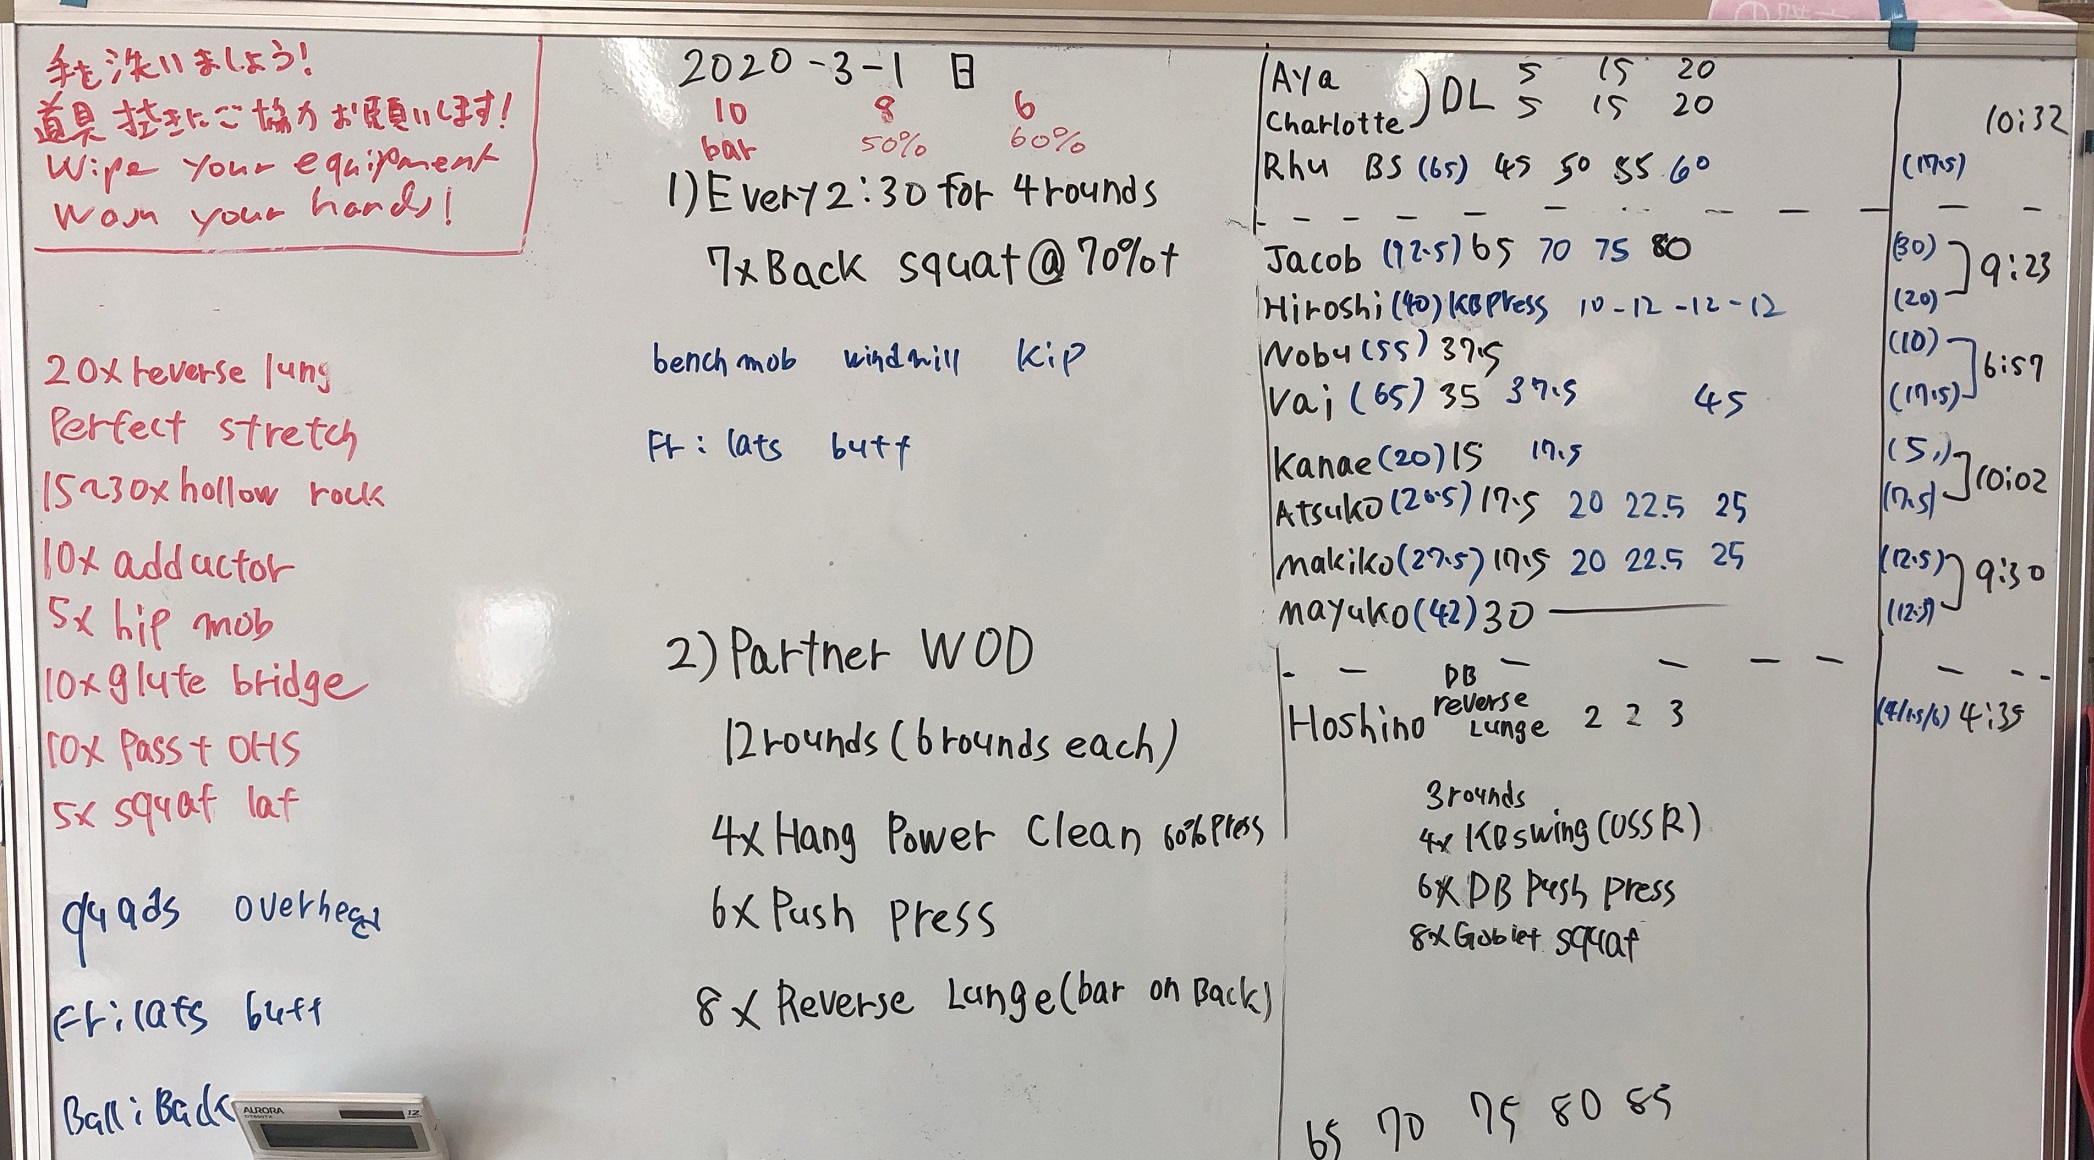 手を洗いましょう!
道具拭きにご協力お願いします!
Wipe your equipment
Wash your hands!
20x reverse lung
Perfect stretch
15~30x hollow rock
10x adductor
5x hip mob
10x glute bridge
10x Pass + OHS
5x squat lat
quads overhead
Fr: lats butt
Ball: Back
AURORA
12
2020-3-1 日
10 8 6
bar 50% 60%
1) Every 2:30 for 4 rounds
7x Back squat @ 70%+
bench mob windmill kip
Fr: lats butt
2) Partner WOD
12 rounds (6 rounds each)
4x Hang Power Clean 60% Press
6x Push press
8x Reverse Lunge (bar on Back)
Aya ) DL 5 15 20
Charlotte 5 15 20 10:32
Rhu BS (65) 45 50 55 60 (17.5)
Jacob (92.5) 65 70 75 80 (30) ] 9:23
Hiroshi (40) KB Press 10-12-12-12 (20)
Nobu (55) 37.5 (10) ] 6:57
Vai (65) 35 37.5 45 (17.5)
Kanae (20) 15 17.5 (5,) ] 10:02
Atsuko (26.5) 17.5 20 22.5 25 (7.5)
makiko (27.5) 17.5 20 22.5 25 (12.5) ] 9:30
mayuko (42) 30 (12.5)
Hoshino DB reverse Lunge 2 2 3 4:35
3 rounds
4x KB swing (OSSR)
6x DB Push press
8x Goblet squat
65 70 75 80 85